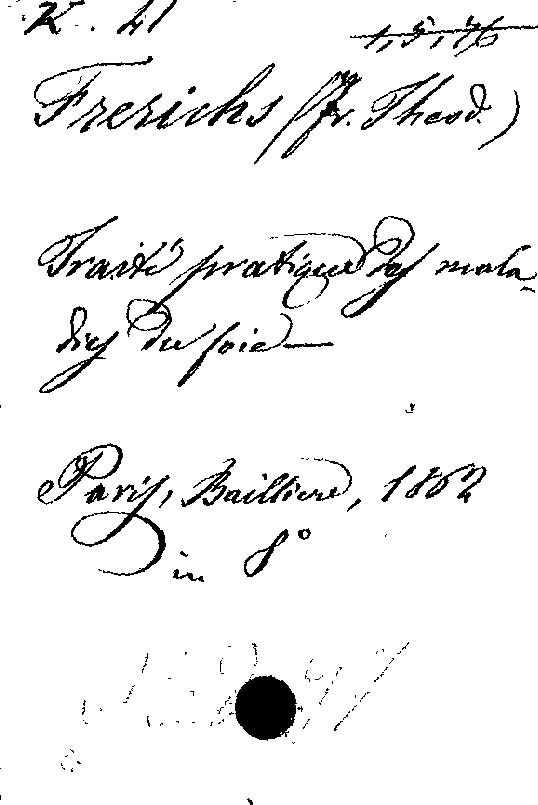 K. 21
1,5,76
Frerichs (Fr. Theod.)
Traité pratique des mala-
dies du foie
Paris, Baillière, 1862
in 8°